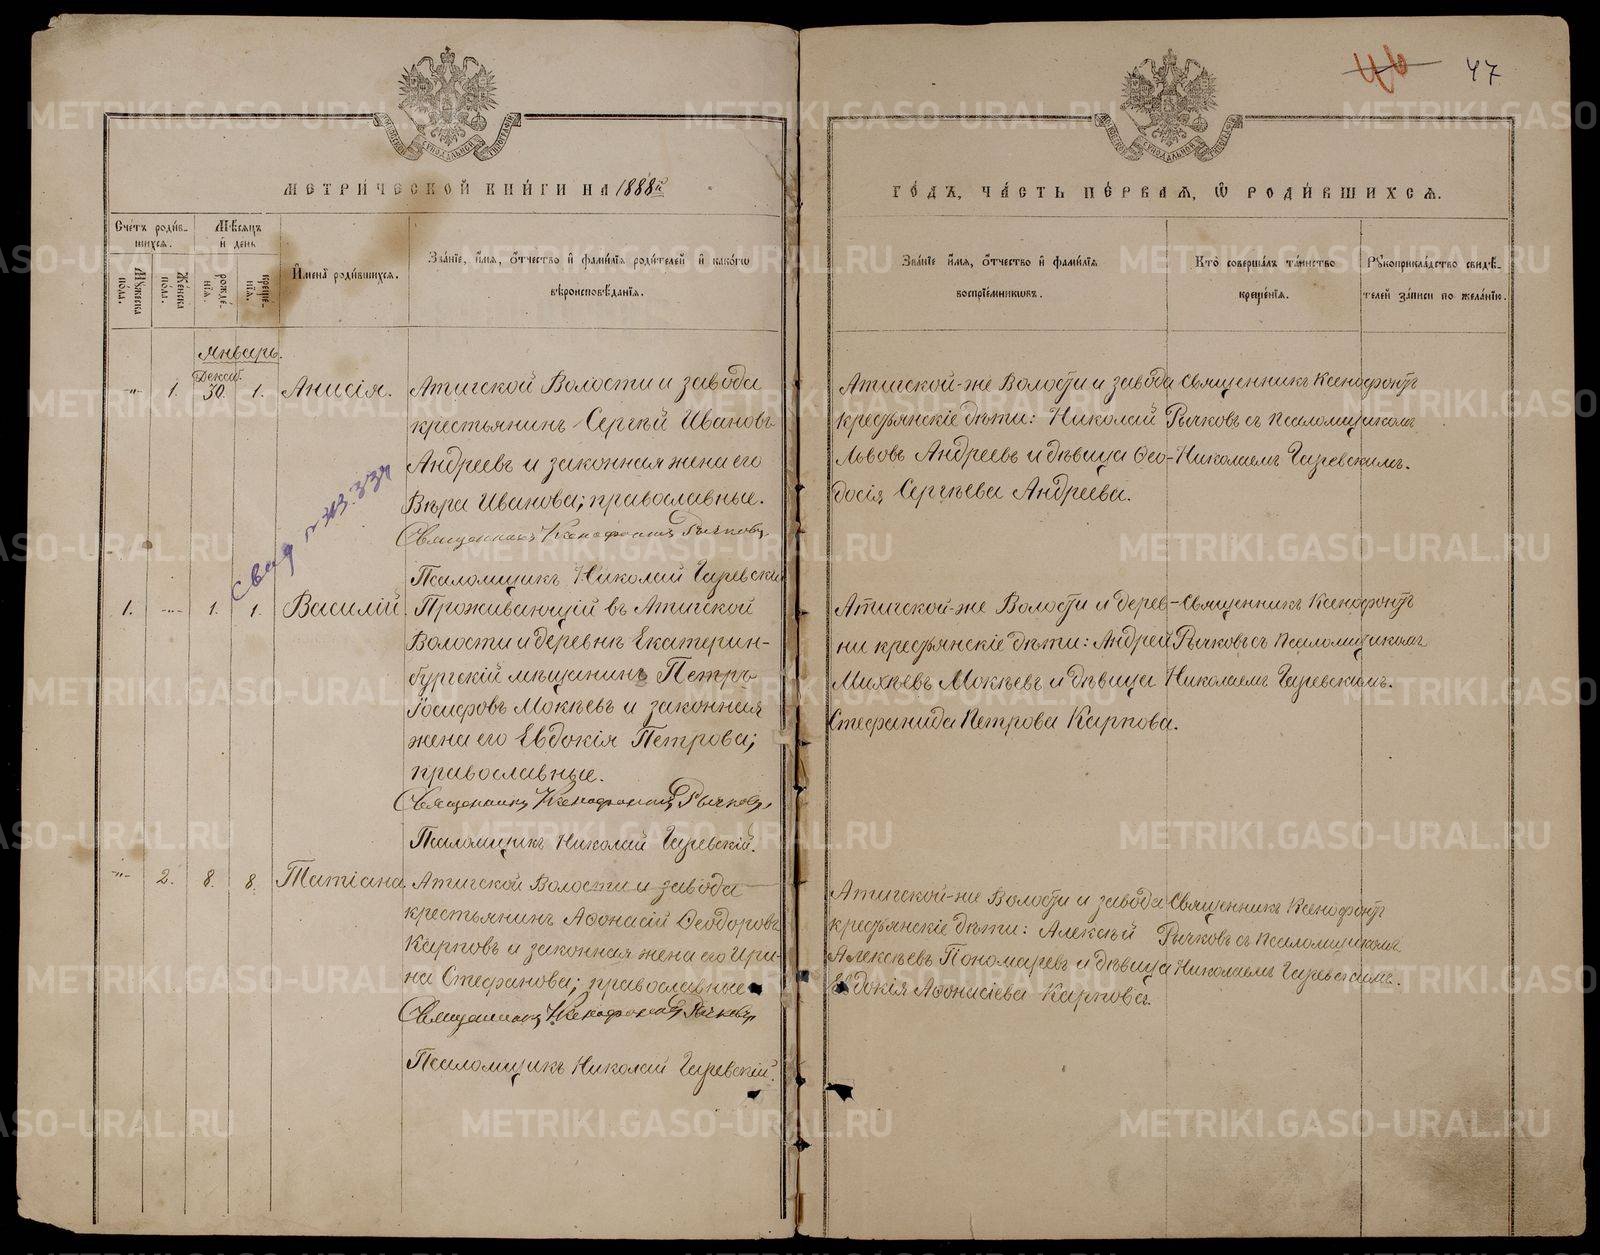 47
МЕТРИ́ЧЕСКОЙ КНИ́ГИ НА 1888й
ГО́ДЪ, ЧА́СТЬ ПЕ́РВАѦ, Ѡ РОДИ́ВШИХСѦ.
Сче́тъ роди́в-
шихсѧ.
Мꙋжеска
по́ла.
Же́нска
по́ла.
Мѣ́сѧцъ
и҆ день
рожде́-
нїѧ.
креще́-
нїѧ.
И҆мена̀ роди́вшихсѧ.
Зва́нїе, и҆́мѧ, ѻ҆́тчество и҆ фами́лїѧ роди́телей и҆ како́гѡ
вѣроисповѣ́данїѧ.
Зва́нїе и҆́мѧ, ѻ҆́тчество и҆ фами́лїѧ
воспрїе́мникѡвъ.
Кто̀ соверша́лъ та́инство
креще́нїѧ.
Рꙋкоприкла́дство свидѣ́-
телей за́писи по жела́нїю.
Январь.
Декаб.
-"- 1. 30. 1. Анисія.
Атигской Волости и завода
крестьянинъ Сергѣй Ивановъ
Андреевъ и законная жена его
Вѣра Иванова; православные.
Священникъ Ксенофонтъ Рычковъ
Псаломщикъ Николай Гаревскій
Атигской-же Волости и завода
крестьянскіе дѣти: Николай
Львовъ Андреевъ и дѣвица Ѳео-
досія Сергѣева Андреева.
Священникъ Ксенофонтъ
Рычковъ съ псаломщикомъ
Николаемъ Гаревскимъ.
свид №
1. -"- 1. 1. Василій.
Проживающій въ Атигской
Волости и деревнѣ Екатерин-
бургскій мѣщанинъ Петръ
Іосифовъ Мокѣевъ и законная
жена его Евдокія Петрова;
православные.
Священникъ Ксенофонтъ Рычковъ
Псаломщикъ Николай Гаревскій.
Атигской-же Волости и дерев-
ни крестьянскіе дѣти: Андрей
Михѣевъ Мокѣевъ и дѣвица
Стефанида Петрова Карпова.
Священникъ Ксенофонтъ
Рычковъ съ псаломщикомъ
Николаемъ Гаревскимъ.
-"- 2. 8. 8. Татіана.
Атигской Волости и завода
крестьянинъ Аѳонасій Ѳеодоровъ
Карповъ и законная жена его Ири-
на Стефанова; православные
Священникъ Ксенофонтъ Рычковъ
Псаломщикъ Николай Гаревскій.
Атигской-же Волости и завода
крестьянскіе дѣти: Алексѣй
Алексѣевъ Пономаревъ и дѣвица
Евдокія Аѳонасіева Карпова.
Священникъ Ксенофонтъ
Рычковъ съ псаломщикомъ
Николаемъ Гаревскимъ.
METRIKI.GASO-URAL.RU